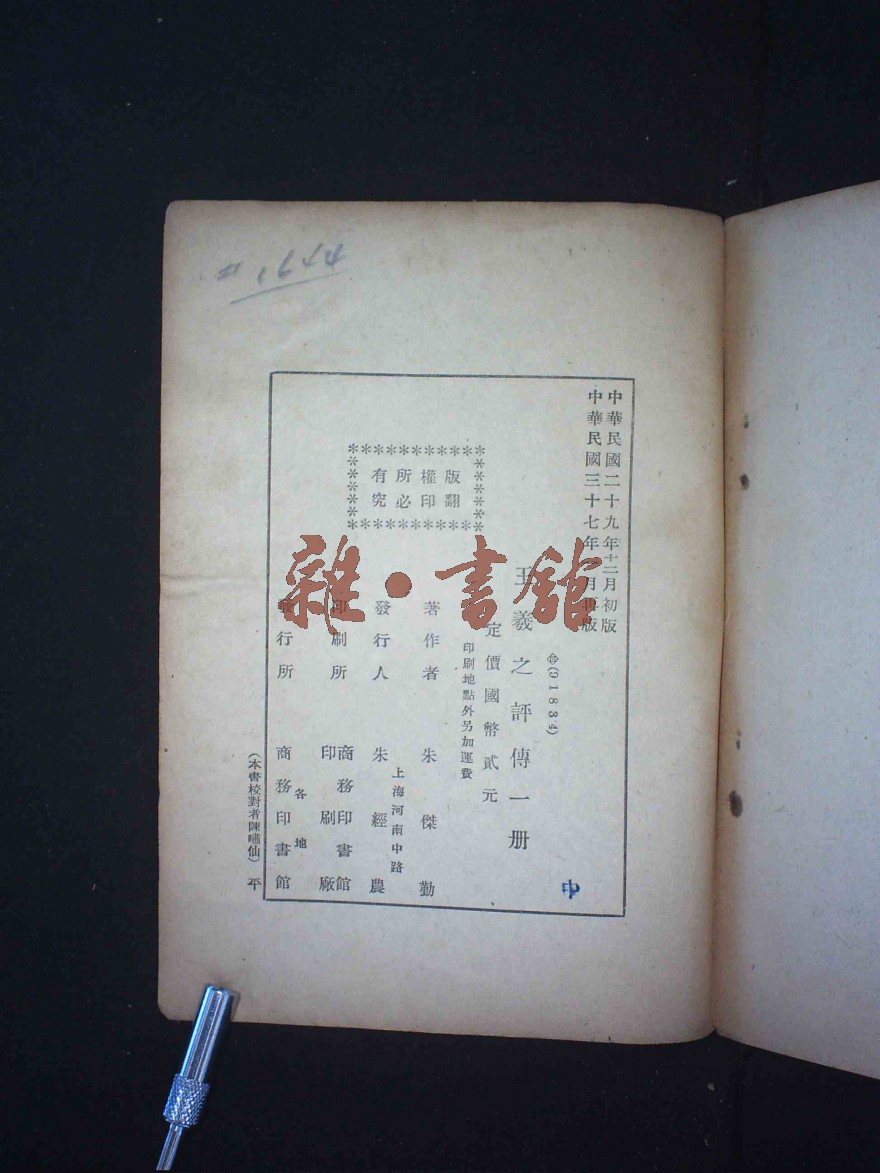 中華民國二十九年十二月初版
中華民國三十七年 月再版
(91834)
王羲之評傳一册
定價國幣貳元
印刷地點外另加運費
版權所有
翻印必究
著作者 朱傑勤
上海河南中路
發行人 朱經農
印刷所 商務印書館印刷廠
各地
發行所 商務印書館
(本書校對者陳嘯仙)平
中
雜·書館